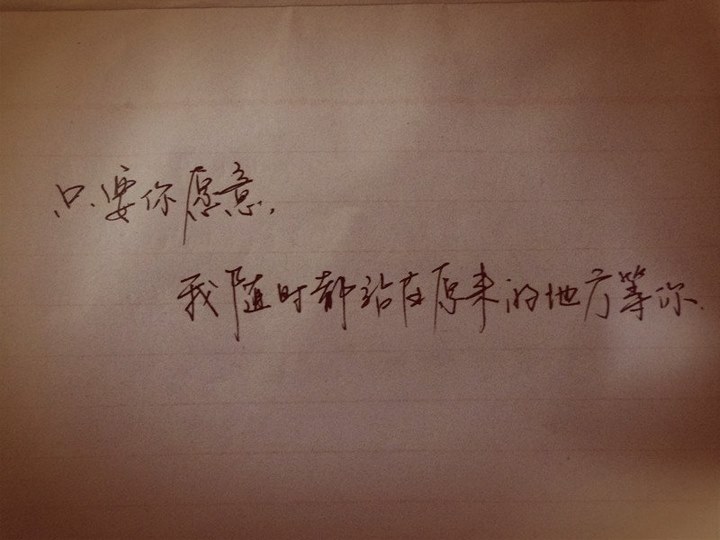 只要你愿意，
我随时都站在原来的地方等你.